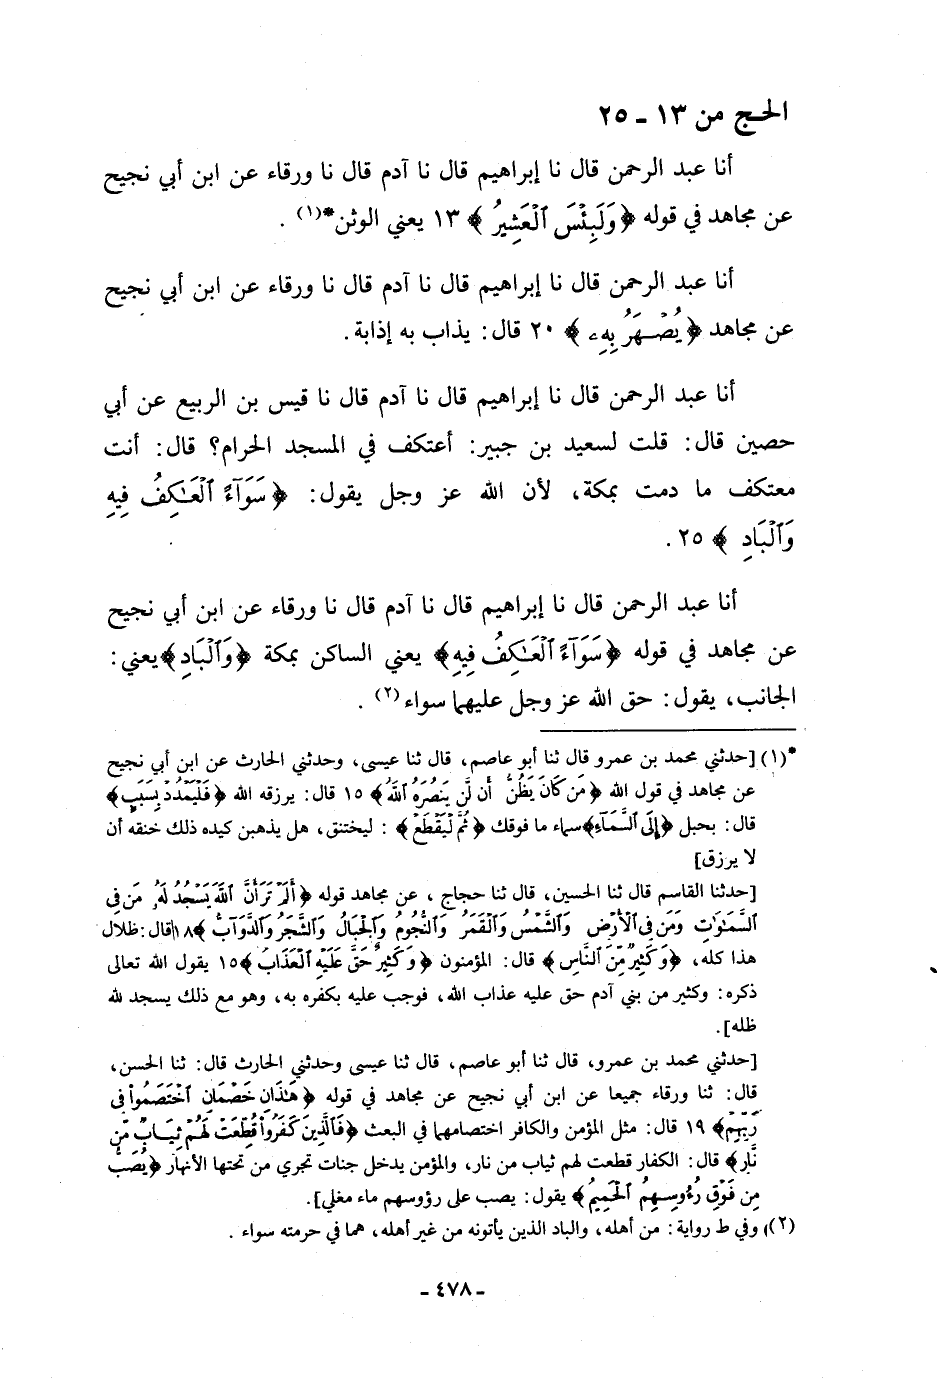 الحج من ١٣ ـ ٢٥
أنا عبد الرحمن قال نا إبراهيم قال نا آدم قال نا ورقاء عن ابن أبي نجيح
عن مجاهد في قوله ﴿ وَلَبِئْسَ ٱلْعَشِيرُ ﴾ ١٣ يعني الوثن*(١) .
أنا عبد الرحمن قال نا إبراهيم قال نا آدم قال نا ورقاء عن ابن أبي نجيح
عن مجاهد ﴿ يُصْهَرُ بِهِۦ ﴾ ٢٠ قال: يذاب به إذابة.
أنا عبد الرحمن قال نا إبراهيم قال نا آدم قال نا قيس بن الربيع عن أبي
حصين قال: قلت لسعيد بن جبير: أعتكف في المسجد الحرام؟ قال: أنت
معتكف ما دمت بمكة، لأن الله عز وجل يقول: ﴿ سَوَآءً ٱلْعَـٰكِفُ فِيهِ
وَٱلْبَادِ ﴾ ٢٥ .
أنا عبد الرحمن قال نا إبراهيم قال نا آدم قال نا ورقاء عن ابن أبي نجيح
عن مجاهد في قوله ﴿سَوَآءً ٱلْعَـٰكِفُ فِيهِ﴾ يعني الساكن بمكة ﴿وَٱلْبَادِ﴾يعني:
الجانب، يقول: حق الله عز وجل عليهما سواء(٢) .
*(١) [حدثني محمد بن عمرو قال ثنا أبو عاصم، قال ثنا عيسى، وحدثني الحارث عن ابن أبي نجيح
عن مجاهد في قول الله ﴿مَن كَانَ يَظُنُّ أَن لَّن يَنصُرَهُ ٱللَّهُ﴾ ١٥ قال: يرزقه الله ﴿فَلْيَمْدُدْ بِسَبَبٍ﴾
قال: بحبل ﴿إِلَى ٱلسَّمَآءِ﴾سماء ما فوقك ﴿ثُمَّ لْيَقْطَعْ﴾ : ليختنق، هل يذهبن كيده ذلك خنقه أن
لا يرزق]
[حدثنا القاسم قال ثنا الحسين، قال ثنا حجاج ، عن مجاهد قوله ﴿أَلَمْ تَرَ أَنَّ ٱللَّهَ يَسْجُدُ لَهُۥ مَن فِى
ٱلسَّمَـٰوَٰتِ وَمَن فِى ٱلْأَرْضِ وَٱلشَّمْسُ وَٱلْقَمَرُ وَٱلنُّجُومُ وَٱلْجِبَالُ وَٱلشَّجَرُ وَٱلدَّوَآبُّ﴾١٨قال:ظلال
هذا كله، ﴿وَكَثِيرٌ مِّنَ ٱلنَّاسِ﴾ قال: المؤمنون ﴿وَكَثِيرٌ حَقَّ عَلَيْهِ ٱلْعَذَابُ﴾١٥ يقول الله تعالى
ذكره: وكثير من بني آدم حق عليه عذاب الله، فوجب عليه بكفره به، وهو مع ذلك يسجد لله
ظله].
[حدثني محمد بن عمرو، قال ثنا أبو عاصم، قال ثنا عيسى وحدثني الحارث قال: ثنا الحسن،
قال: ثنا ورقاء جميعا عن ابن أبي نجيح عن مجاهد في قوله ﴿هَـٰذَانِ خَصْمَانِ ٱخْتَصَمُوا۟ فِى
رَبِّهِمْ﴾ ١٩ قال: مثل المؤمن والكافر اختصامهما في البعث ﴿فَٱلَّذِينَ كَفَرُوا۟ قُطِّعَتْ لَهُمْ ثِيَابٌ مِّن
نَّارٍ﴾ قال: الكفار قطعت لهم ثياب من نار، والمؤمن يدخل جنات تجري من تحتها الأنهار ﴿يُصَبُّ
مِن فَوْقِ رُءُوسِهِمُ ٱلْحَمِيمُ﴾ يقول: يصب على رؤوسهم ماء مغلي].
(٢) وفي ط رواية: من أهله، والباد الذين يأتونه من غير أهله، هما في حرمته سواء .
ـ ٤٧٨ ـ